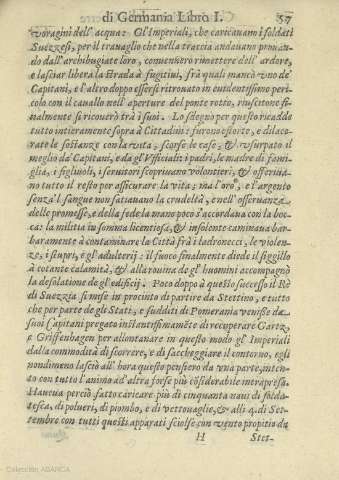 di Germania Libro I. 57
voragini dell'acqua: Gl'Imperiali, che caricauano i soldati
Suezzesi, per il trauaglio che nella traccia andauano prouan-
do dall'archibugiate loro, conuennero rimettere dell'ardore,
e lasciar libera la strada à fugitiui, frà quali mancò vno de'
Capitani, e l'altro doppo essersi ritrouato in euidentissimo peri-
colo con il cauallo nell'aperture del ponte rotto, riuscitone fi-
nalmente si ricouerò trà i suoi. Lo sdegno per questo ricadde
tutto intieramente sopra à Cittadini: furono esposte, e dilace-
rate le sostanze con la vita; scorse le case; & vsurpato il
meglio da' Capitani, e da gl'Vfficiali: i padri, le madre di fami-
glia, i figliuoli, i seruitori scopriuano volontieri, & offeriua-
no tutto il resto per assicurare la vita; ma l'oro, e l'argento
senza'l sangue non satiauano la crudeltà, e nell'osseruanza
delle promesse, e della fede la mano poco s'accordaua con la boc-
ca: la militia in somma licentiosa, & insolente caminaua bar-
baramente à contaminare la Città frà i ladronecci, le violen-
ze, i stupri, e gl'adulterij: il fuoco finalmente diede il siggillo
à cotante calamità, & alla rouina de gl'huomini accompagnò
la desolatione de gl'edificij. Poco doppo à questo successo il Rè
di Suezzia si mise in procinto di partire da Stettino, e tutto
che per parte de gli Stati, e sudditi di Pomerania venisse da
suoi Capitani pregato instantissimamẽte di recuperare Gartz,
e Griffenhagen per allontanare in questo modo gl'Imperiali
dalla commodità di scorrere, e di saccheggiare il contorno, egli
nondimeno lasciò all'hora questo pensiero da vna parte, inten-
to con tutto l'animo ad'altra forse più cõsiderabile intrapresa.
Haueua perciò fatto caricare più di cinquanta naui di solda-
tesca, di polueri, di piombo, e di vettouaglie, & alli 4. di Set-
tembre con tutti questi apparati sciolse con vento propitio da
H Stet-
Colección ABANCA